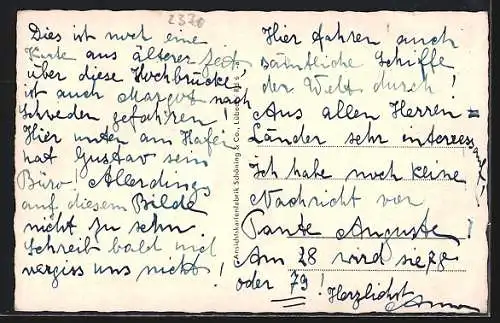 2320
Dies ist noch eine
Karte aus älterer Zeit,
über diese Hochbrücke
ist auch Margot nach
Schweden gefahren!
Hier unten am Hafen
hat Gustav sein
Büro. Allerdings
auf diesem Bilde
nicht zu sehn.
Schreib bald und
vergiss uns nicht!
Ansichtskartenfabrik Schöning & Co., Lübeck
Hier fahren auch
sämtliche Schiffe
der Welt durch!
Aus allen Herren=
Länder sehr interessant!
Ich habe noch keine
Nachricht von
Tante Auguste!
Am 28 wird sie 78
oder 79! Herzlichst